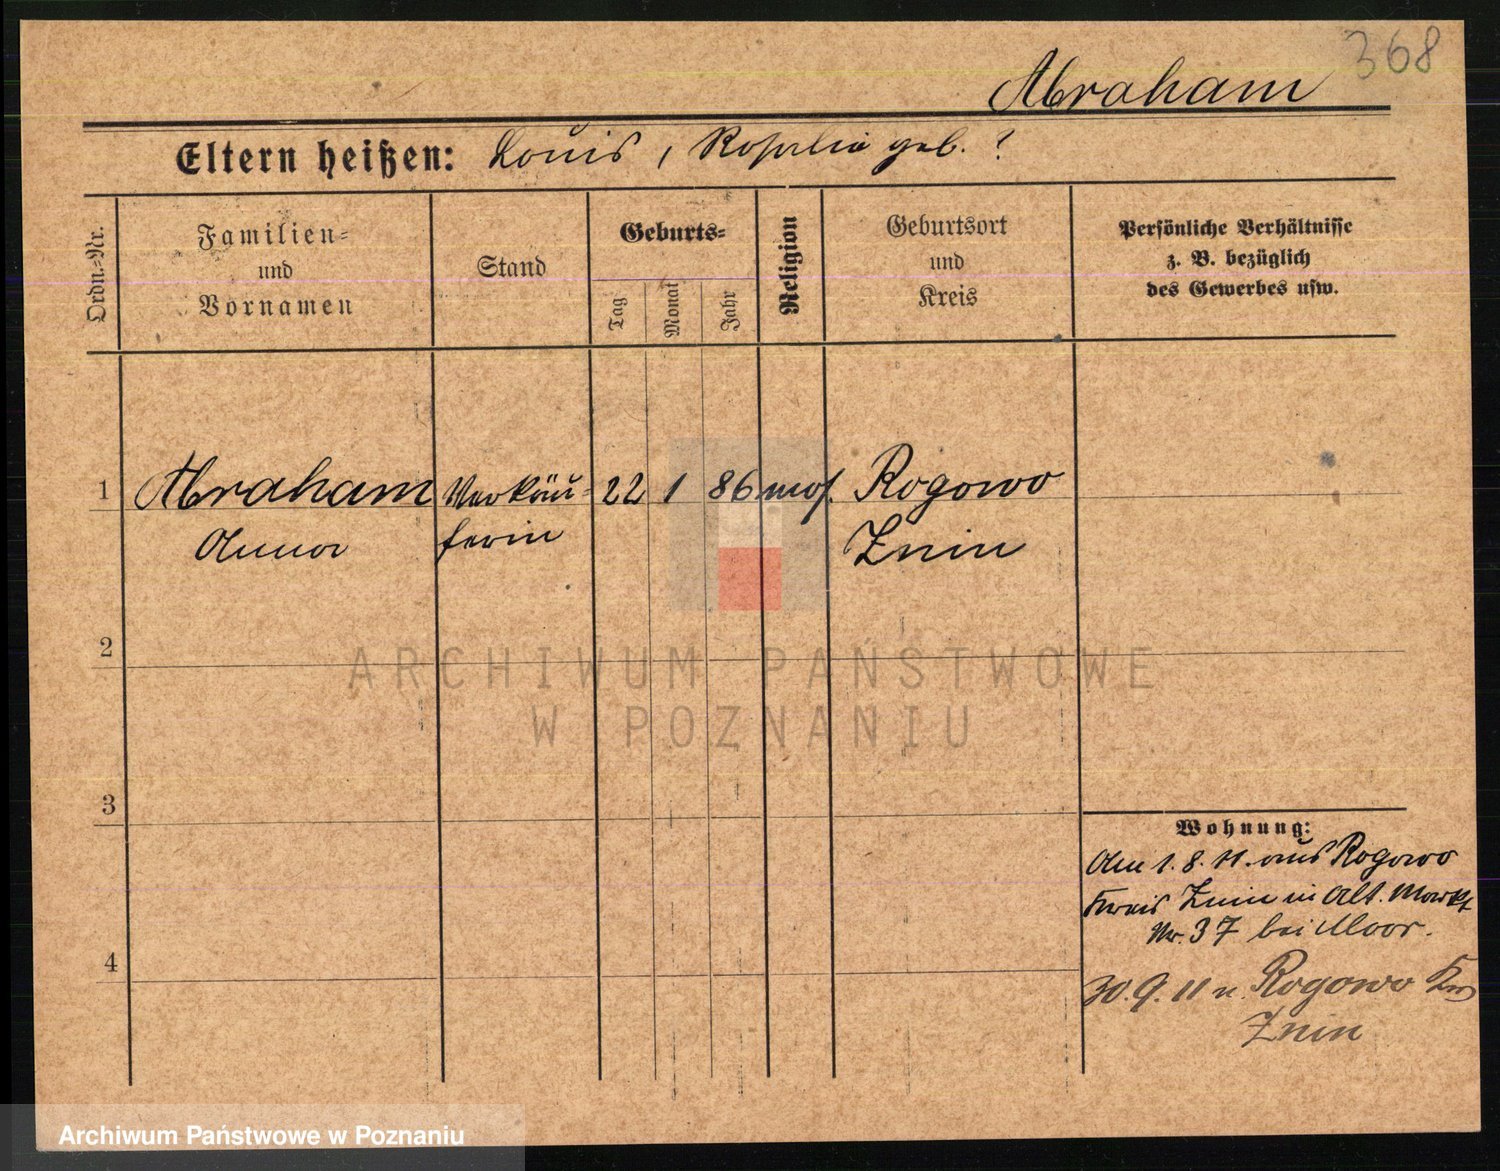 368
Abraham
Eltern heißen: Louis, Rosalia geb. ?
Ordn.-Nr.
Familien-
und
Vornamen
Stand
Geburts-
Tag
Monat
Jahr
Religion
Geburtsort
und
Kreis
Persönliche Verhältnisse
z. B. bezüglich
des Gewerbes usw.
1 Abraham Verkäu- 22 1 86 mos. Rogowo
Anna ferin Znin
2
3
4
Wohnung:
Am 1. 8. 11. aus Rogowo
Kreis Znin in Alt. Markt
Nr. 37 bei Moor.
30. 9. 11 n. Rogowo Krs
Znin
ARCHIWUM PAŃSTWOWE
W POZNANIU
Archiwum Państwowe w Poznaniu